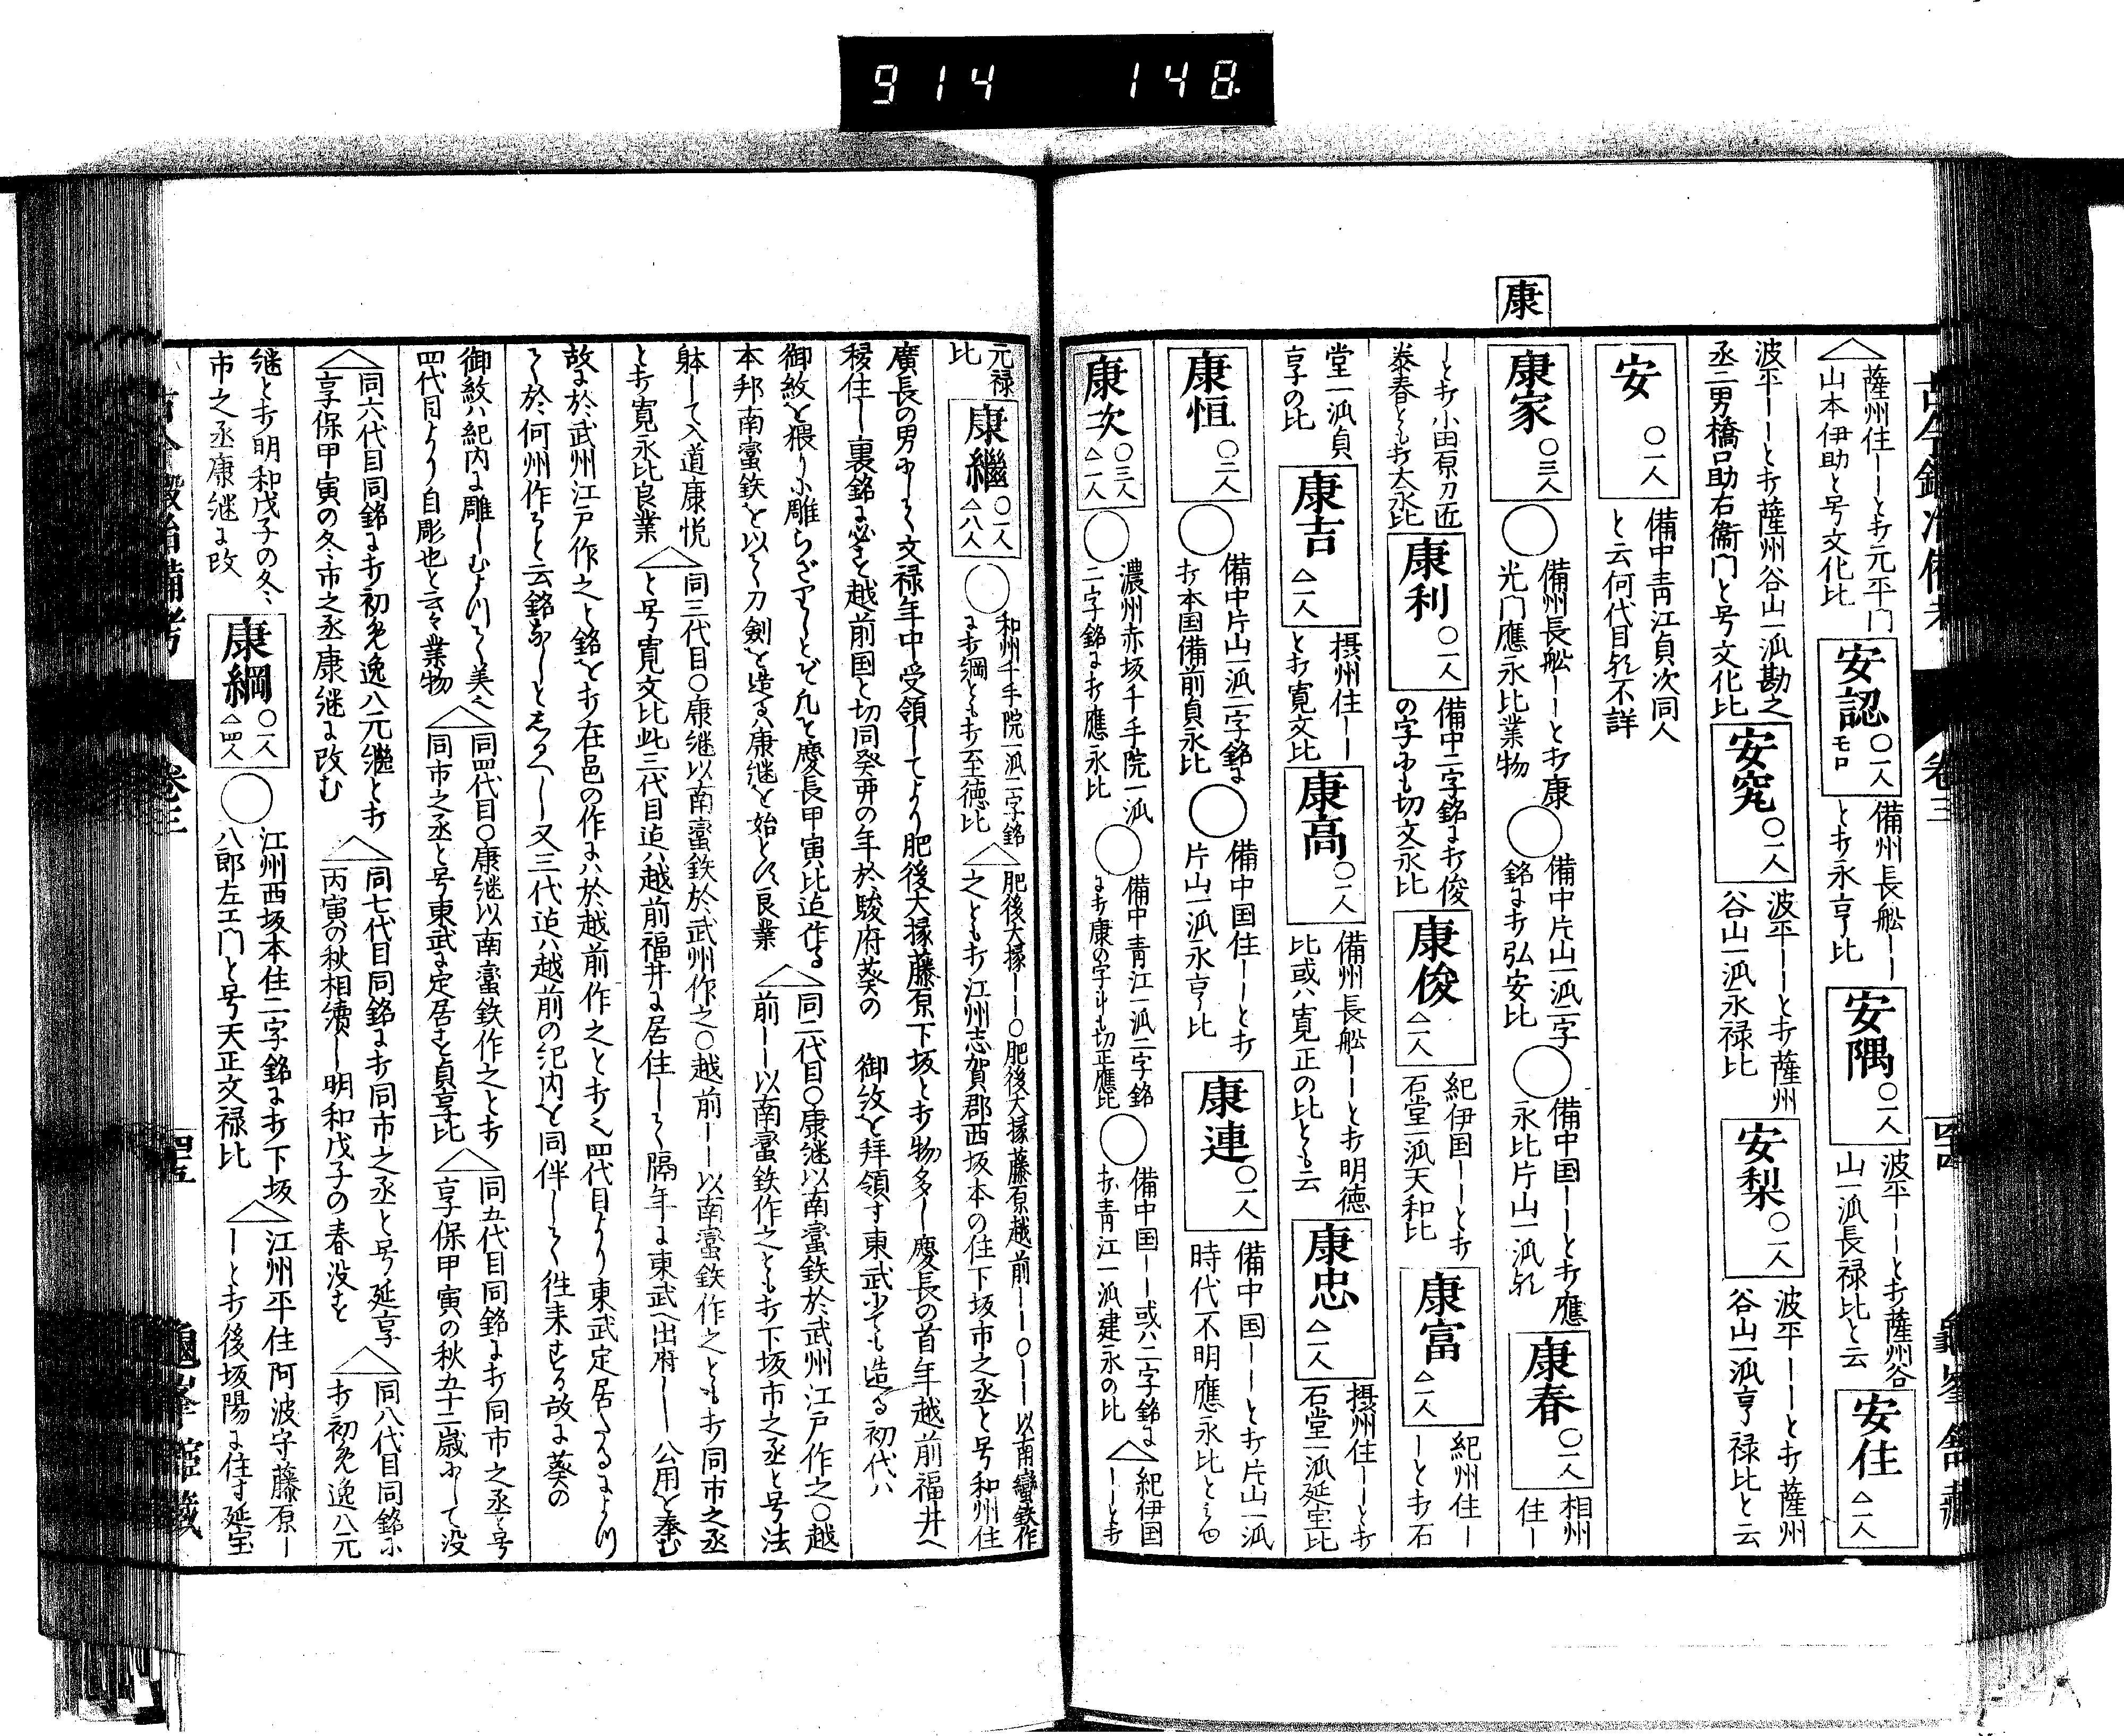 914 148
康
△薩州住ーーと打元平門
山本伊助と号文化比
安認 〇一人 モロ
備州長船ーー
と打永享比
安隅 〇一人
波平ーーと打薩州谷
山一派長禄比と云
安住 △一人
波平ーーと打薩州谷山一派勘之
丞二男橋口助右衛門と号文化比
安究 〇一人
波平ーーと打薩州
谷山一派永禄比
安梨 〇一人
波平ーーと打薩州
谷山一派享禄比と云
安 〇一人
備中青江貞次同人
と云何代目歟不詳
康家 〇三人
〇備州長船ーーと打康
光門應永比業物
〇備中片山一派二字
銘に打弘安比
〇備中国ーーと打應
永比片山一派歟
康春 〇一人
相州
住ー
ーと打小田原刀匠
泰春とも打大永比
康利 〇一人
備中二字銘に打俊
の字にも切文永比
康俊 △一人
紀伊国ーーと打
石堂一派天和比
康富 △一人
紀州住ー
ーと打石
堂一派貞
享の比
康吉 △一人
摂州住ーー
と打寛文比
康高 〇一人
備州長船ーーと打明徳
比或ハ寛正の比とも云
康忠 △一人
摂州住ーーと打
石堂一派延宝比
康恒 〇二人
〇備中片山一派二字銘に
打本国備前貞永比
〇備中国住ーーと打
片山一派永享比
康連 〇一人
備中国ーーと打片山一派
時代不明應永比と云
康次 〇三人 △一人
〇濃州赤坂千手院一派
二字銘に打應永比
〇備中青江一派二字銘
に打康の字にも切正應比
〇備中国ーー或ハ二字銘に
打青江一派建永の比
△紀伊国
ーーと打
元禄
比
康繼 〇一人 △八人
〇和州千手院一派二字銘
に打綱とも打至徳比
△肥後大掾ーー〇肥後大掾藤原越前ーー〇ーー以南蠻鉄作
之とも打江州志賀郡西坂本の住下坂市之丞と号和州住
廣長の男にして文禄年中受領してより肥後大掾藤原下坂と打物多し慶長の首年越前福井へ
移住し裏銘に必を越前国と切同癸丑の年於駿府葵の 御紋を拝領す東武にても造る初代ハ
御紋を猥りに雕らざりしとぞ凡を慶長甲寅比迄作る
本邦南蛮鉄を以て刀劍を造るハ康継を始とす良業
△同二代目〇康継以南蛮鉄於武州江戸作之〇越
前ーー以南蛮鉄作之とも打下坂市之丞と号法
躰して入道康悦
と打寛永比良業
△同三代目〇康継以南蛮鉄於武州作之〇越前ーー以南蛮鉄作之とも打同市之丞
と号寛文比此三代目迄ハ越前福井に居住して隔年に東武へ出府し 公用を奉む
故に於武州江戸作之と銘を打在邑の作にハ於越前作之と打へ四代目より東武定居たるによつ
て於何州作ると云銘なしとしるへし又三代迄ハ越前の紀内を同伴して往来せる故に葵の
御紋ハ紀内に雕しむよつて美へ
四代目より自彫也と云々業物
△同四代目〇康継以南蛮鉄作之と打
同市之丞と号東武に定居を貞享比
△同五代目同銘に打同市之丞と号
享保甲寅の秋五十二歳にて没
△同六代目同銘に打初免逸八元繼と打
享保甲寅の冬市之丞康継に改む
△同七代目同銘に打同市之丞と号延享
丙寅の秋相續し明和戊子の春没を
△同八代目同銘に
打初免逸八元
継と打明和戊子の冬
市之丞康継に改
康綱 〇一人 △四人
〇江州西坂本住二字銘に打下坂
八郎左エ門と号天正文禄比
△江州平住阿波守藤原ー
ーと打後坂陽に住す延宝
古今鍛冶備考 卷三 四五